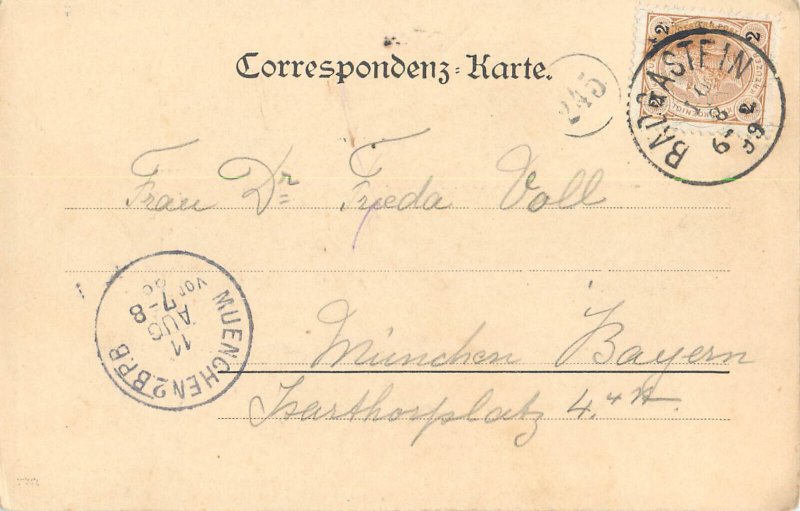 Correspondenz-Karte.
245
2 2
BAD GASTEIN
99
Frau Dr Frieda Voll
MUENCHEN 2 B.P.B
11
AUG
7-8
Vor
München Bayern
Isarthorplatz 4.